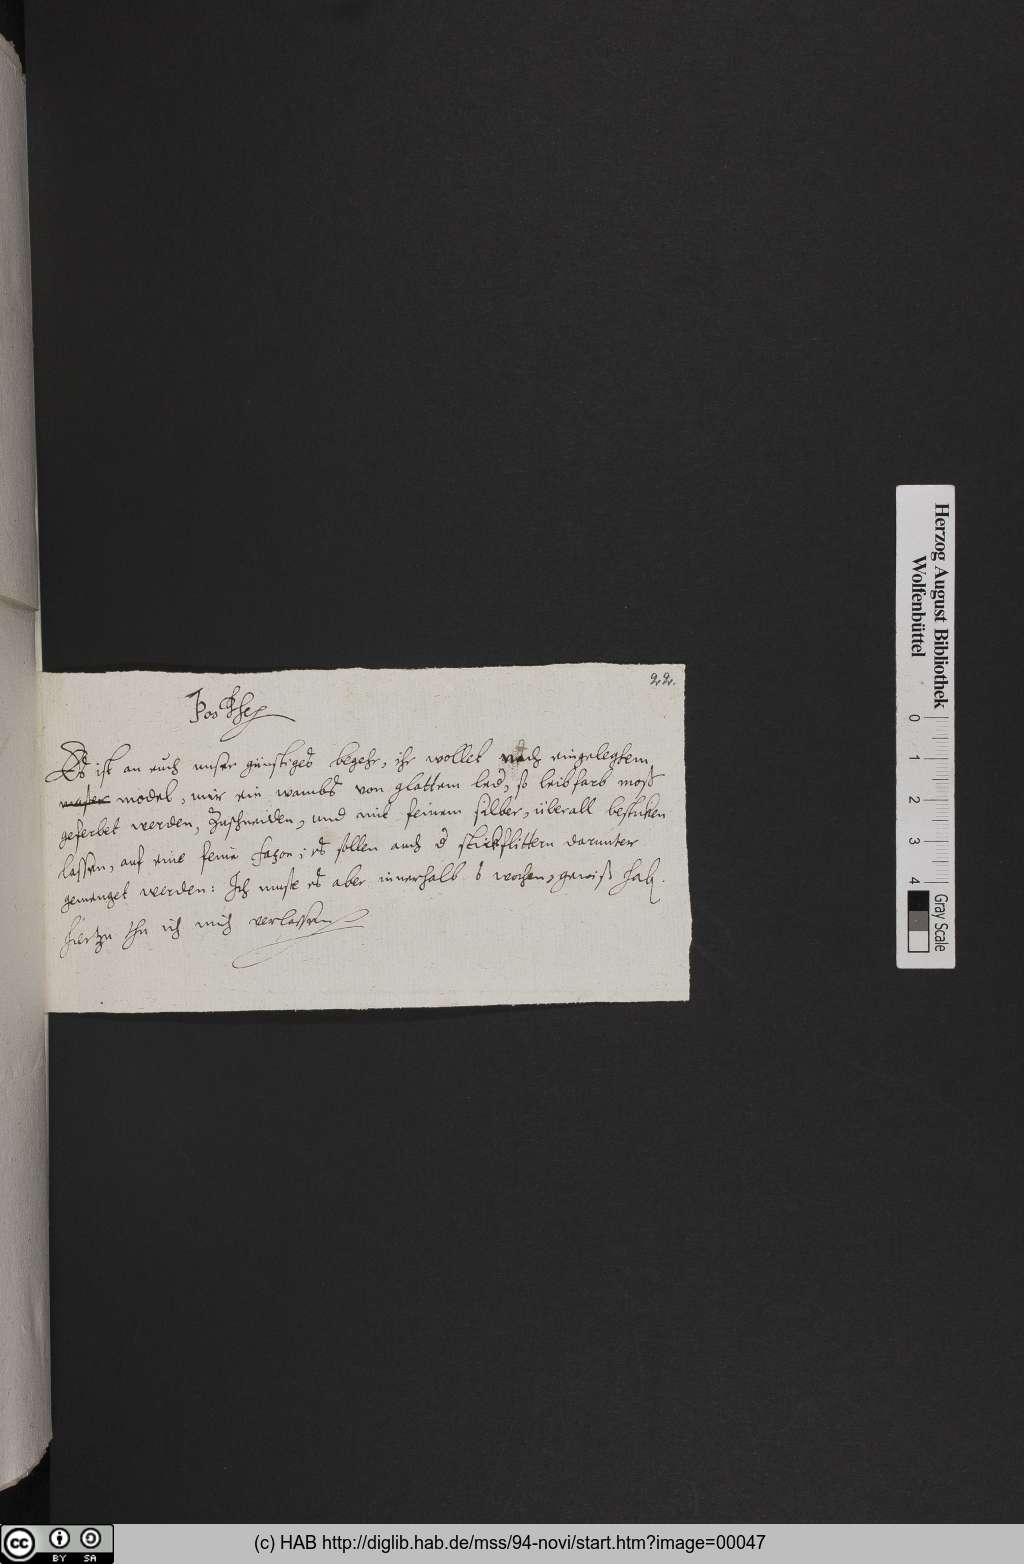 22.
Es ist an euch unser günstiges begehr, ihr wollet nach eingelegtem
model, mir ein wambs von glattem led, so leibfarb muß
geferbet werden, Zuschneiden, und mit feinem silber, überall besticken
lassen, auf eine feine façon; es sollen auch stickflittern darunter
gemenget werden: Ich muß es aber innerhalb 6 wochen, gewiß hab.
hierzu thu ich mich verlassen
Herzog August Bibliothek
Wolfenbüttel
0 1 2 3 4
Gray Scale
cc BY SA
(c) HAB http://diglib.hab.de/mss/94-novi/start.htm?image=00047